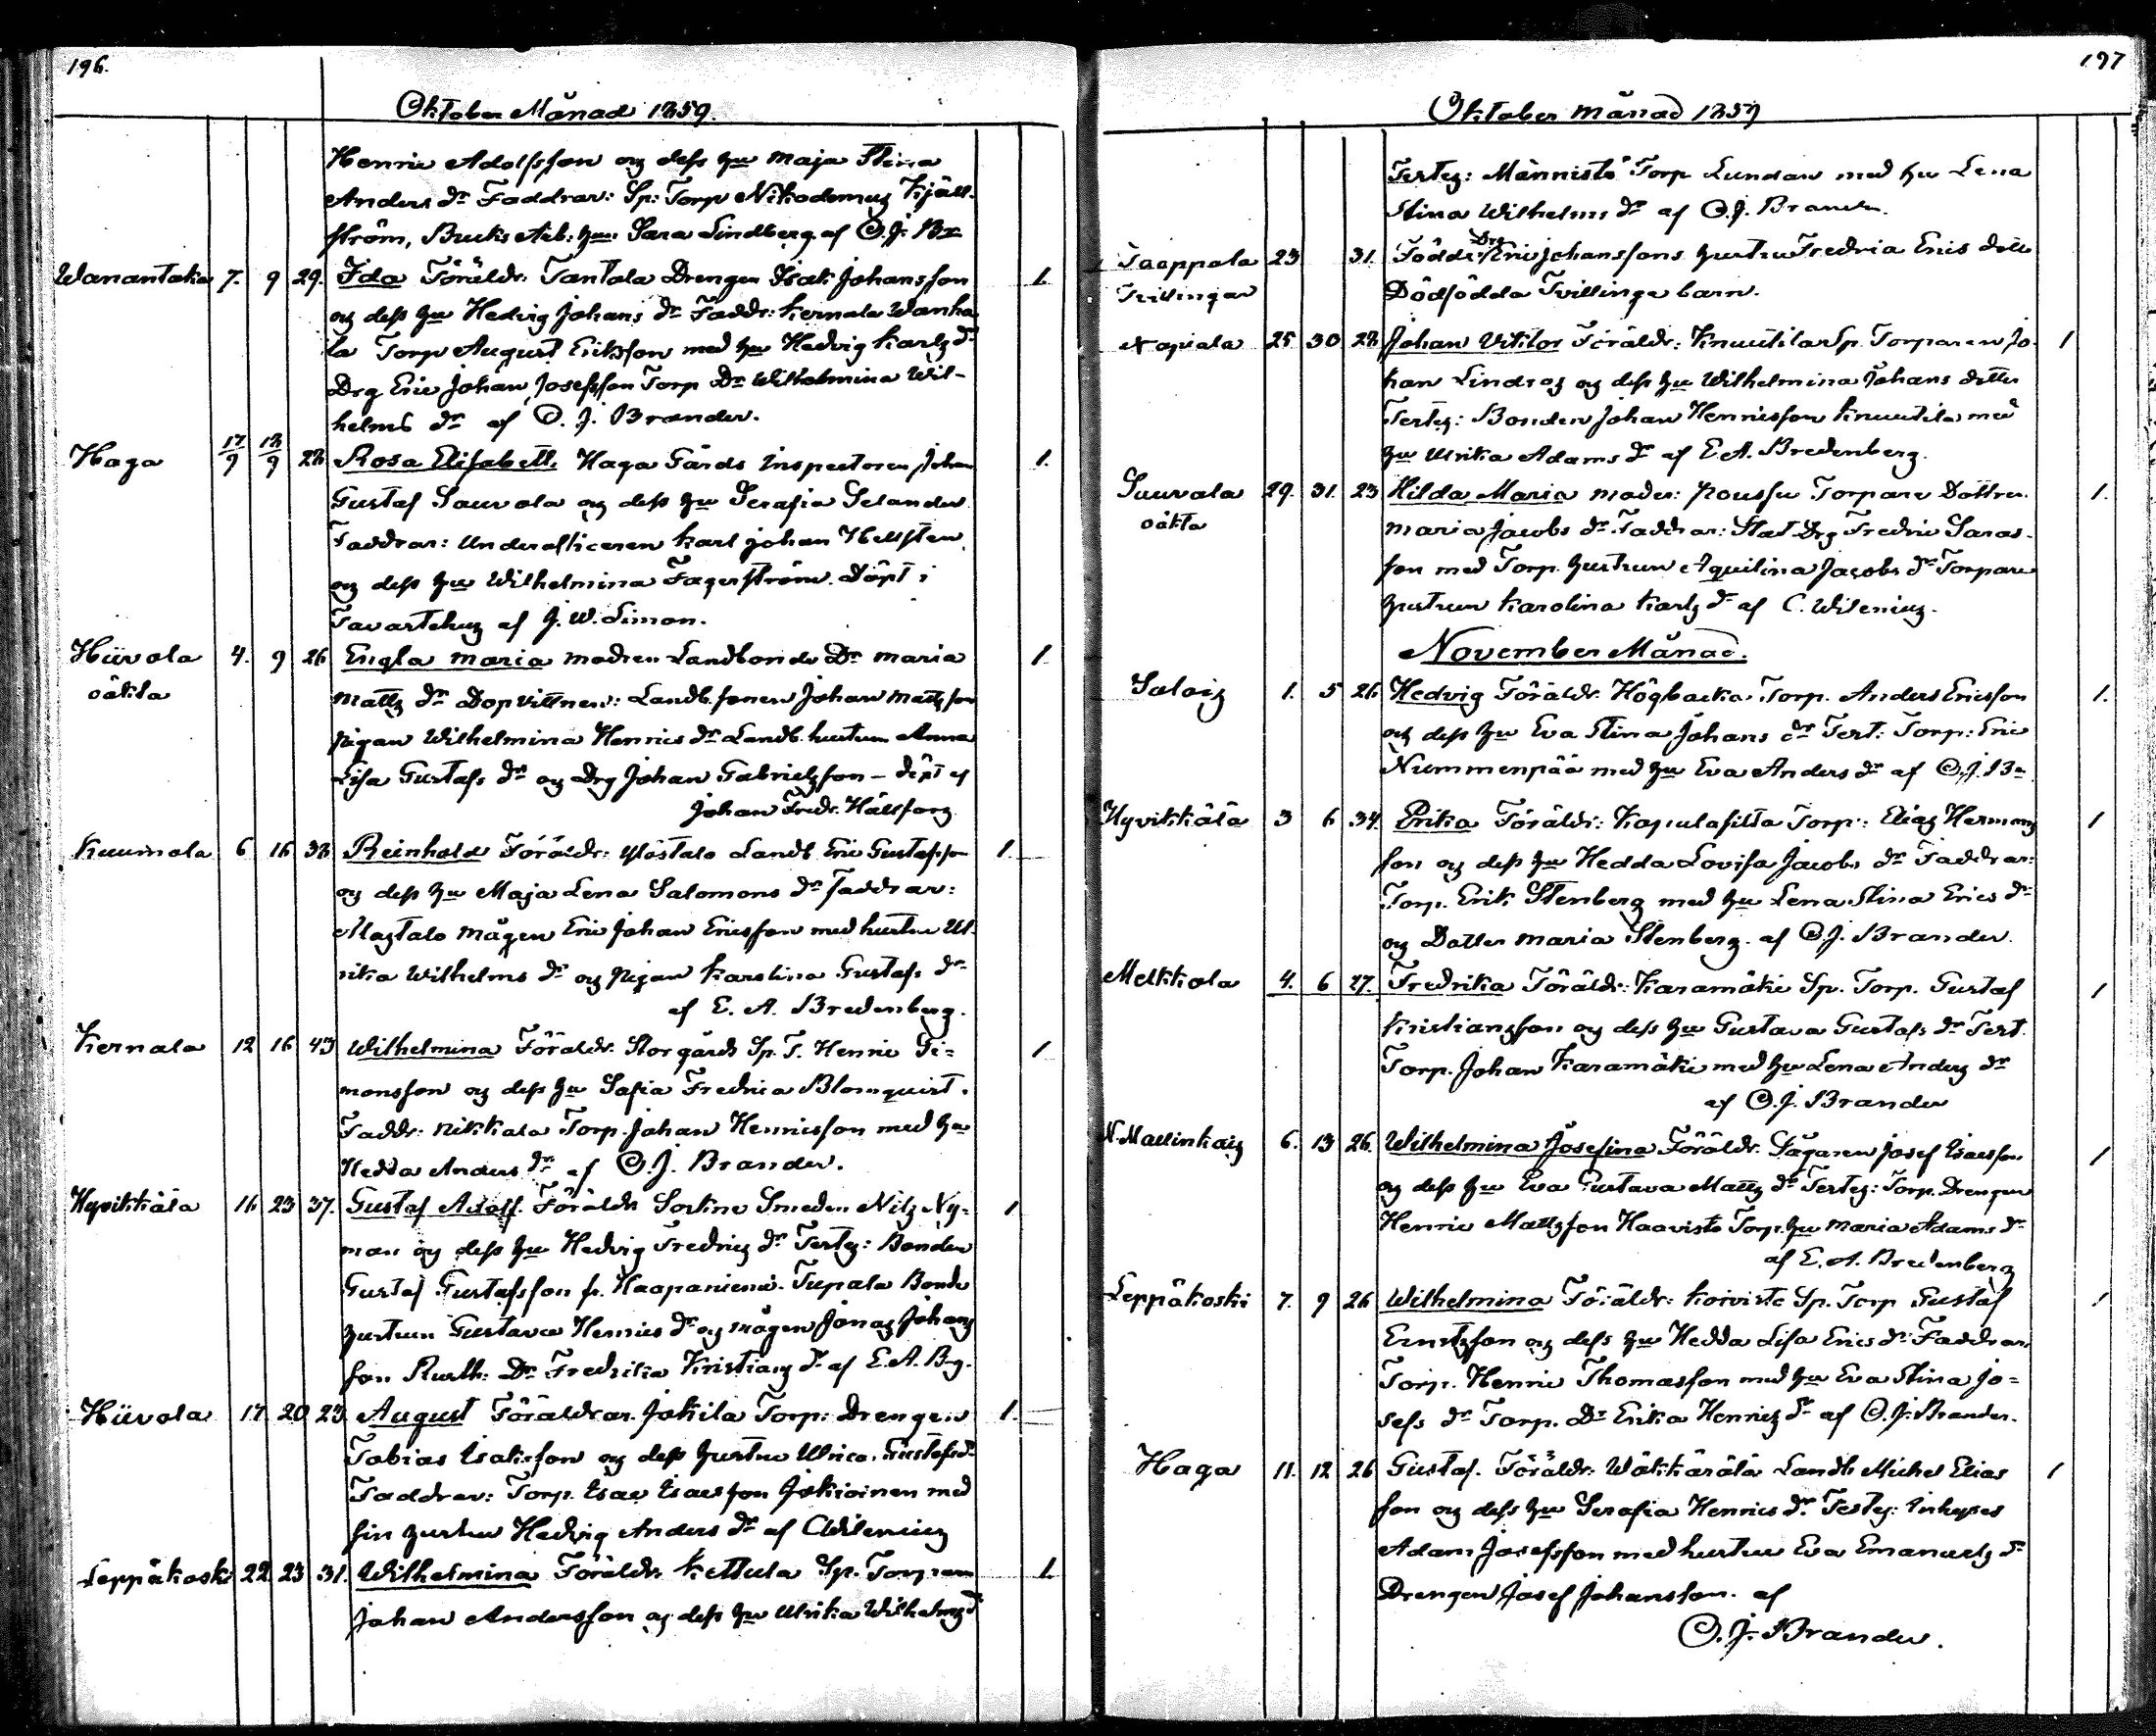 196.
Oktober Månad 1859.
Henric Adolfsson og dess hu Maja Stina
Anders dr Faddrar: Sp: Torp Nikodemus Kjäll-
ström, Bruks Arb: hu Sara Lindberg af O. J. Br
Wanantaka 7. 9 29. Ida Föräldr. Tantala Drengen Isak Johansson 1.
og dess hu Hedvig Johans dr Faddr: Kernala Wanha
la Torp August Eriksson med hu Hedvig Karls dr
Drg Eric Johan Josefsson Torp Dr Wilhelmina Wil-
helms dr af O. J. Brander.
Haga 17/9 18/9 28 Rosa Elisabeth. Haga Gårds Inspectoren Johan 1.
Gustaf Sauvola og dess hu Serafia Selander
Faddrar: Underofficeren Karl Johan Hellsten
og dess hu Wilhelmina Fagerström. Döpt i
Tavastehus af J. W. Limon.
Hiivola 4. 9 26 Engla Maria modren Landbonde Dr Maria 1.
oäkta Matts dr Dopvittnen: Landb. sonen Johan Mattsson
pigan Wilhelmina Henrics dr Landb. hustrun Anna
Lisa Gustafs dr og Drg Johan Gabrielsson – döpt af
Johan Fredr. Hällfors
Kuumola 6 16 38 Reinhold Föräldr: Ylöstalo Landb Eric Gustafsson 1.
og dess hu Maja Lena Salomons dr Faddrar:
Alastalo mågen Eric Johan Ericsson med hustru Ul-
rika Wilhelms dr og pigan Karolina Gustafs dr
af E. A. Bredenberg.
Kernala 12 16 43 Wilhelmina Föräldr. Storgårds Sp. T. Henric Si=
monsson og dess hu Sofia Fredrica Blomquist.
Faddr: Nikkala Torp. Johan Henricsson med hu
Hedda Anders dr af O. J. Brander.
Hyvikkälä 16 23 37. Gustaf Adolf. Föräldr Smeden Nils Ny= 1
man og dess hu Hedvig Fredrics dr Testes: Bonden
Gustaf Gustafsson fr. Haapaniemi. Tupala Bonde
hustrun Gustava Henrics dr og mågen Jonas Johans
son Rusth: Dr Fredrika Kristians dr af E. A. Bg.
Hiivola 17 20 23 August Föräldrar Jokila Torp: Drengen 1.
Tobias Isaksson og dess hustru Ulrica Gustafs dr
Faddrar: Torp. Esaias Isacsson Jokioinen med
sin hustru Hedvig Anders dr af C Wilenius
Leppäkoski 22. 23 31. Wilhelmina Föräldr. Kettula Sp. Torparen 1.
Johan Andersson og dess hu Ulrika Wilhelms dr
197
Oktober månad 1859
Testes: Männistö Torp Lundan med hu Lena
Stina Wilhelms dr af O. J. Brander.
Taappola 23 31. Födde Drg Eric Johanssons hustru Fredrica Erics dotter
Tvillingar Dödfödda Tvillinge barn.
Napiala 25 30 28 Johan Viktor Föräldr: Knuutilas Sp. Torparen Jo- 1
han Lindroos og dess hu Wilhelmina Johans dotter
Testes: Bonden Johan Henricsson Knuutila med
hu Ulrika Adams dr af E. A. Bredenberg.
Sauvala 29. 31. 23 Hilda Maria moder: Poussu Torpare Dottren 1.
oäkta Maria Jacobs dr Faddrar: Stat Drg Fredric Saras-
son med Torp. hustrun Aquilina Jacobs dr Torpare
hustrun Karolina Karls dr af C. Wilenius.
November Månad.
Saloiz 1. 5 26 Hedvig Föräldr. Högbacka Torp. Anders Ericsson 1.
og dess hu Eva Stina Johans dr Test: Torp: Eric
Nummenpää med hu Eva Anders dr af O. J. Br
Hyvikkälä 3 6 34. Erika Föräldr: Kapulasilta Torp: Elias Hermans 1
son og dess hu Hedda Lovisa Jacobs dr Faddrar:
Torp. Erik Stenberg med hu Lena Stina Erics dr
og Dotter Maria Stenberg. af O. J. Brander.
Melkkola 4. 6 27. Fredrika Föräldr: Karamäki Sp. Torp. Gustaf 1
Kristiansson og dess hu Gustava Gustafs dr Test.
Torp. Johan Karamäki med hu Lena Anders dr
af O. J. Brander
N. Mallinkais 6. 13 26. Wilhelmina Josefina Föräldr. Sågaren Josef Isacsson 1
og dess hu Eva Gustava Matts dr Testes: Torp. Drengen
Henric Mattsson Haavisto Torp. hu Maria Adams dr
af E. A. Bredenberg
Leppäkoski 7. 9 26 Wilhelmina Föräldr: Koivisto Sp. Torp Gustaf 1
Ernstsson og dess hu Hedda Lisa Erics dr Faddrar.
Torp. Henric Thomasson med hu Eva Stina Jo=
sefs dr Torp. Dr Erika Henrics dr af O. J. Brander.
Haga 11. 12 26 Gustaf. Föräldr: Wäkkärälä Landb Michel Elias 1
son og dess hu Serafia Henrics dr Testes: Inhyses
Adam Josefsson med hustru Eva Emanuels dr
Drengen Josef Johansson. af
O. J. Brander.